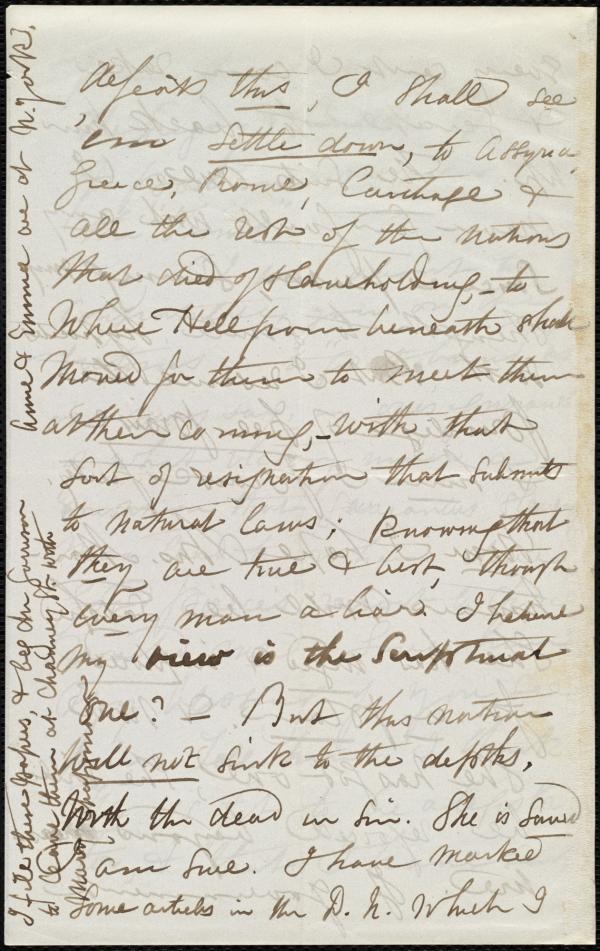 defeats this, I shall see
'em settle down, to Assyria,
Greece, Rome, Carthage &
all the rest of the nations
that died of slaveholding,– to
where Hell from beneath shall
moved for them to meet them
at their coming,– with that
sort of resignation that submits
to natural laws; knowing that
they are true & best, though
every man a liar. I believe
my view is the Scriptural
one? – But this nation
will not sink to the depths,
with the dead in sin. She is saved
am sure. I have marked
some articles in the D. N. which I
Anne & Emma are at N. York].
I file these papers, & beg Mr Garrison
to leave them at Chauncy St. with
Mary